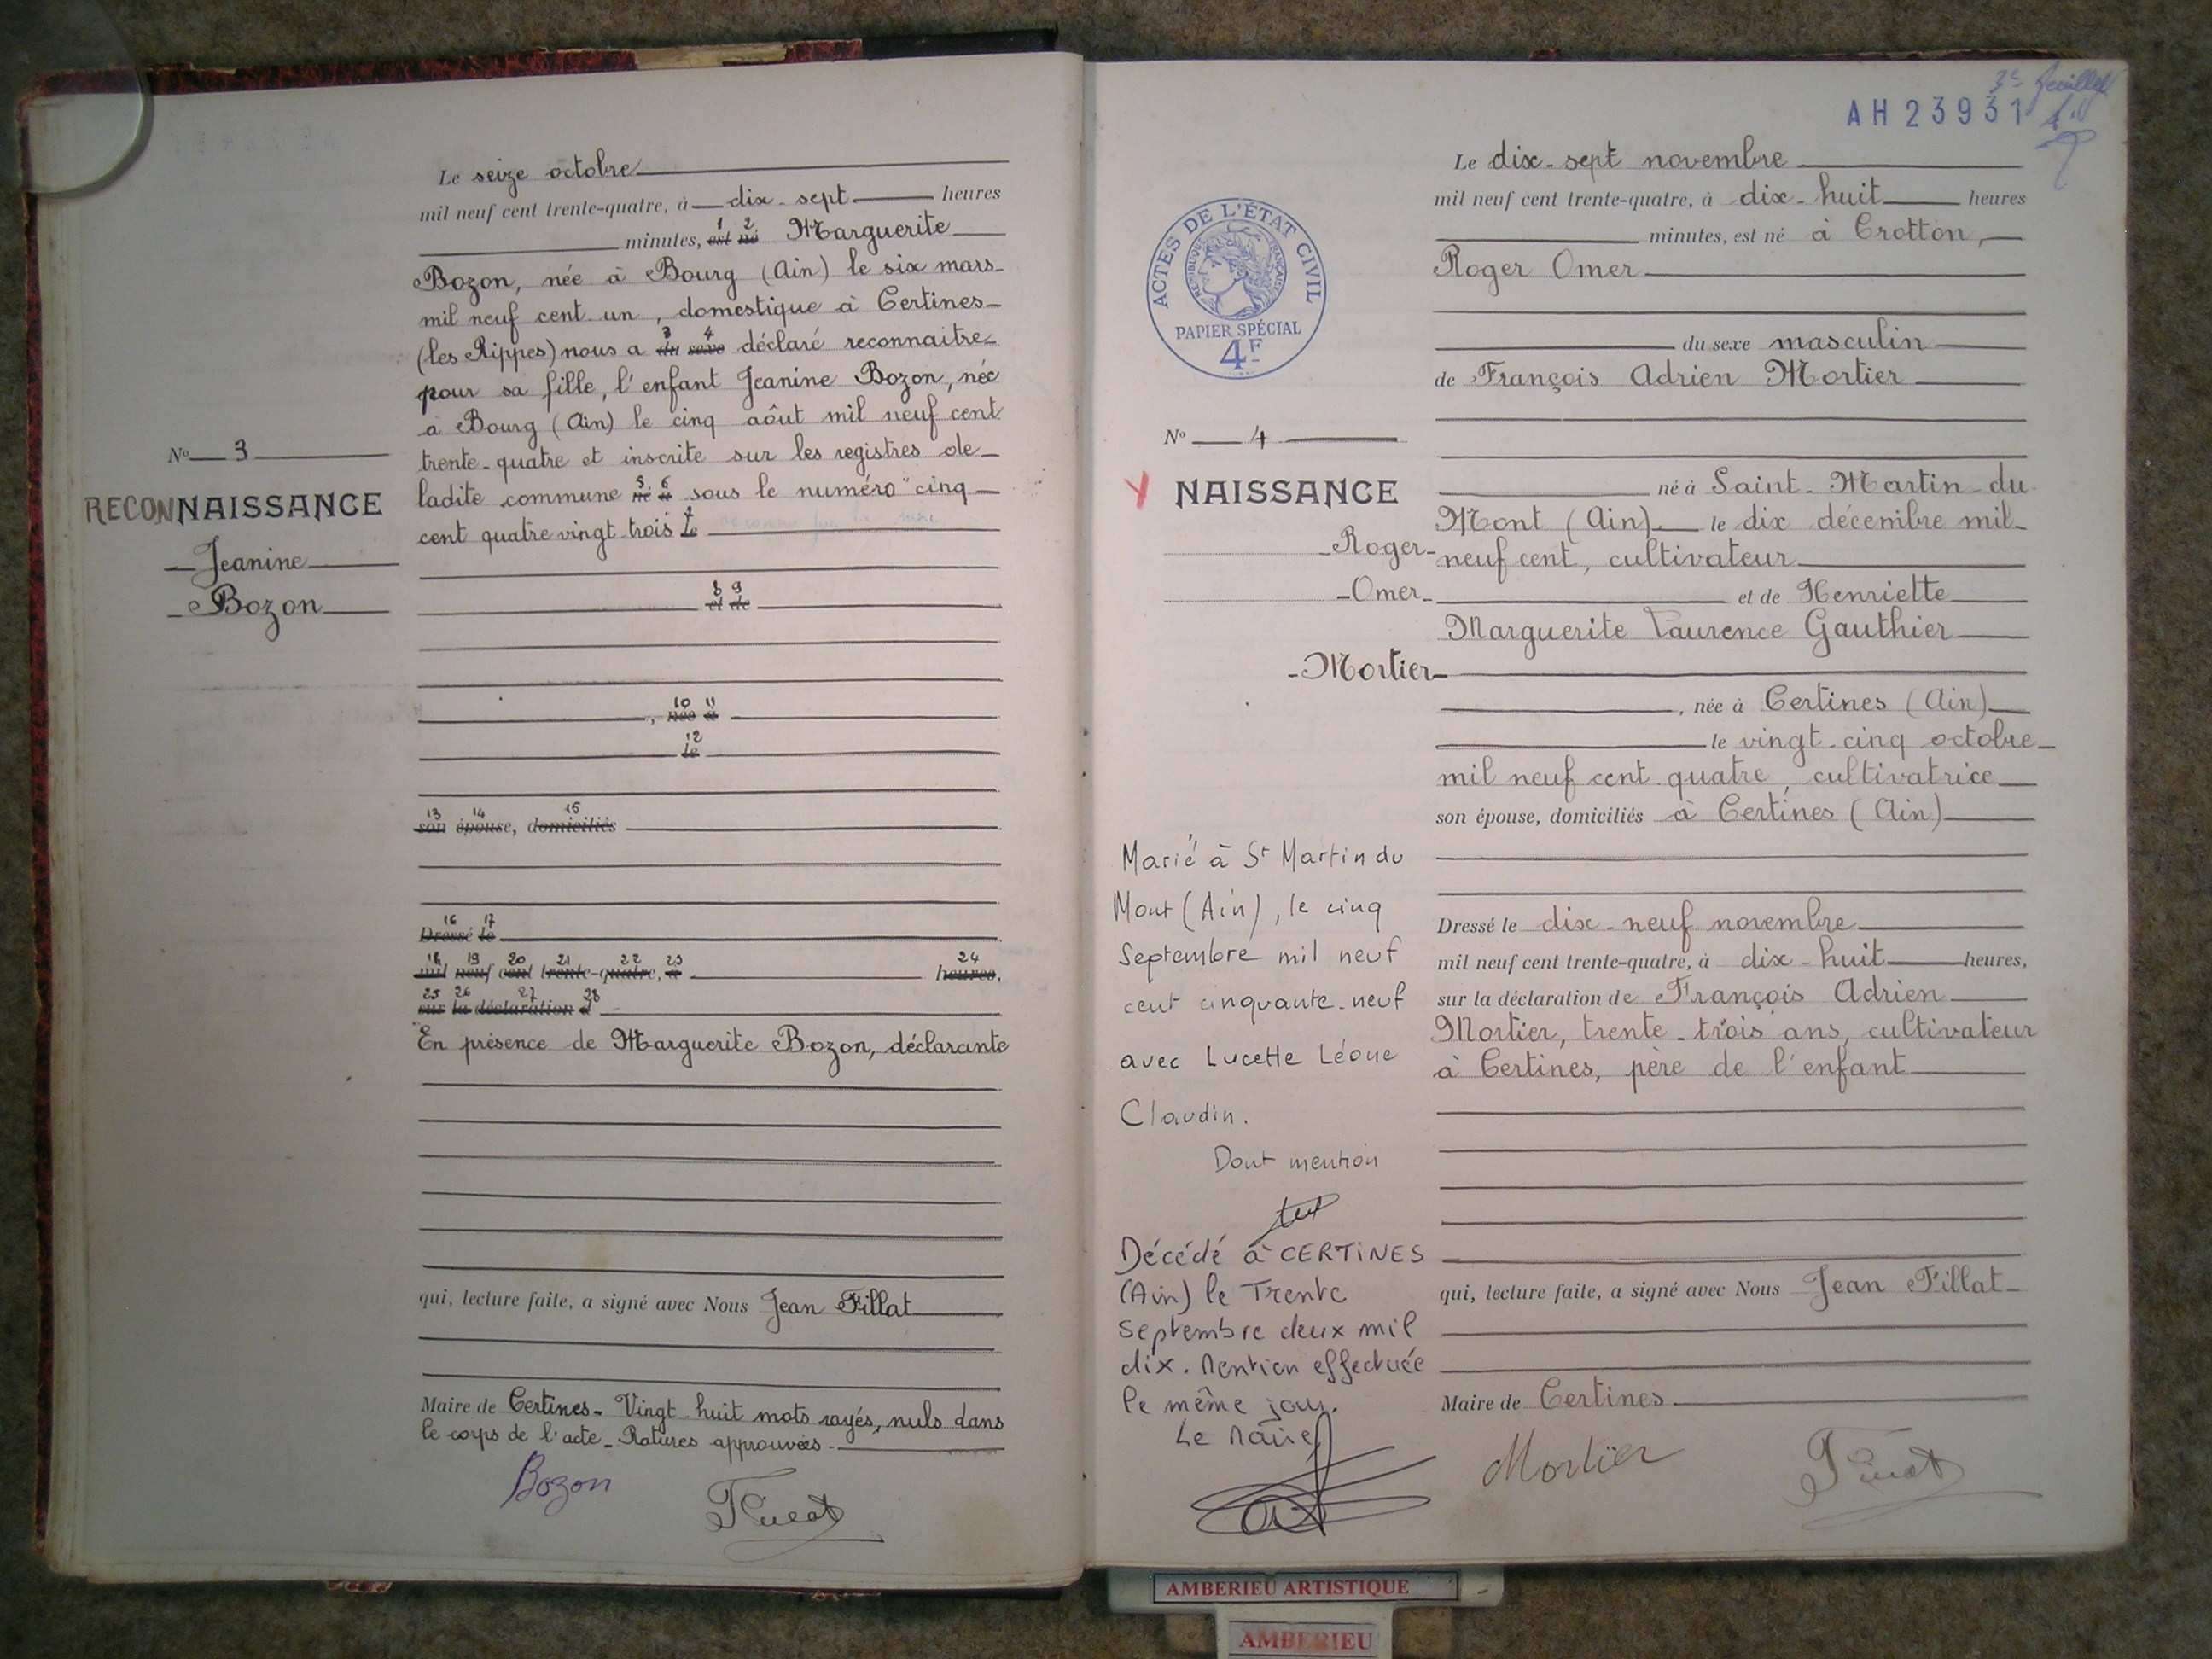 Le seize octobre
mil neuf cent trente-quatre, à dix-sept heures
1 2
minutes, est né Marguerite
Bozon, née à Bourg (Ain) le six mars
mil neuf cent un, domestique à Certines
3 4
(les Rippes) nous a du sexe déclaré reconnaitre
pour sa fille, l'enfant Jeanine Bozon, née
à Bourg (Ain) le cinq aôut mil neuf cent
trente-quatre et inscrite sur les registres de
5 6
ladite commune né à sous le numéro "cinq
7
cent quatre vingt trois le
8 9
et de
10 11
, née à
12
le
13 14 15
son épouse, domiciliés
16 17
Dressé le
18 19 20 21 22 23 24
mil neuf cent trente-quatre, à heures,
25 26 27 28
sur la déclaration d
En présence de Marguerite Bozon, déclarante
qui, lecture faite, a signé avec Nous Jean Fillat
Maire de Certines. Vingt huit mots rayés, nuls dans
le corps de l'acte. Ratures approuvées.
Bozon
Fillat
No 3
RECONNAISSANCE
Jeanine
Bozon
3e feuillet
AH23931
ACTES DE L'ÉTAT CIVIL
RÉPUBLIQUE FRANÇAISE
PAPIER SPÉCIAL
4F
No 4
NAISSANCE
Roger
Omer
Mortier
Marié à St Martin du
Mont (Ain), le cinq
Septembre mil neuf
cent cinquante-neuf
avec Lucette Léone
Claudin.
Dont mention
Décédé à CERTINES
(Ain) le Trente
septembre deux mil
dix. Mention effectuée
le même jour.
Le Maire
Le dix-sept novembre
mil neuf cent trente-quatre, à dix-huit heures
minutes, est né à Crotton,
Roger Omer
du sexe masculin
de François Adrien Mortier
né à Saint-Martin du
Mont (Ain) le dix décembre mil
neuf cent, cultivateur
et de Henriette
Marguerite Laurence Gauthier
, née à Certines (Ain)
le vingt-cinq octobre
mil neuf cent quatre, cultivatrice
son épouse, domiciliés à Certines (Ain)
Dressé le dix-neuf novembre
mil neuf cent trente-quatre, à dix-huit heures,
sur la déclaration de François Adrien
Mortier, trente-trois ans, cultivateur
à Certines, père de l'enfant
qui, lecture faite, a signé avec Nous Jean Fillat
Maire de Certines
Mortier
Fillat
AMBERIEU ARTISTIQUE
AMBERIEU